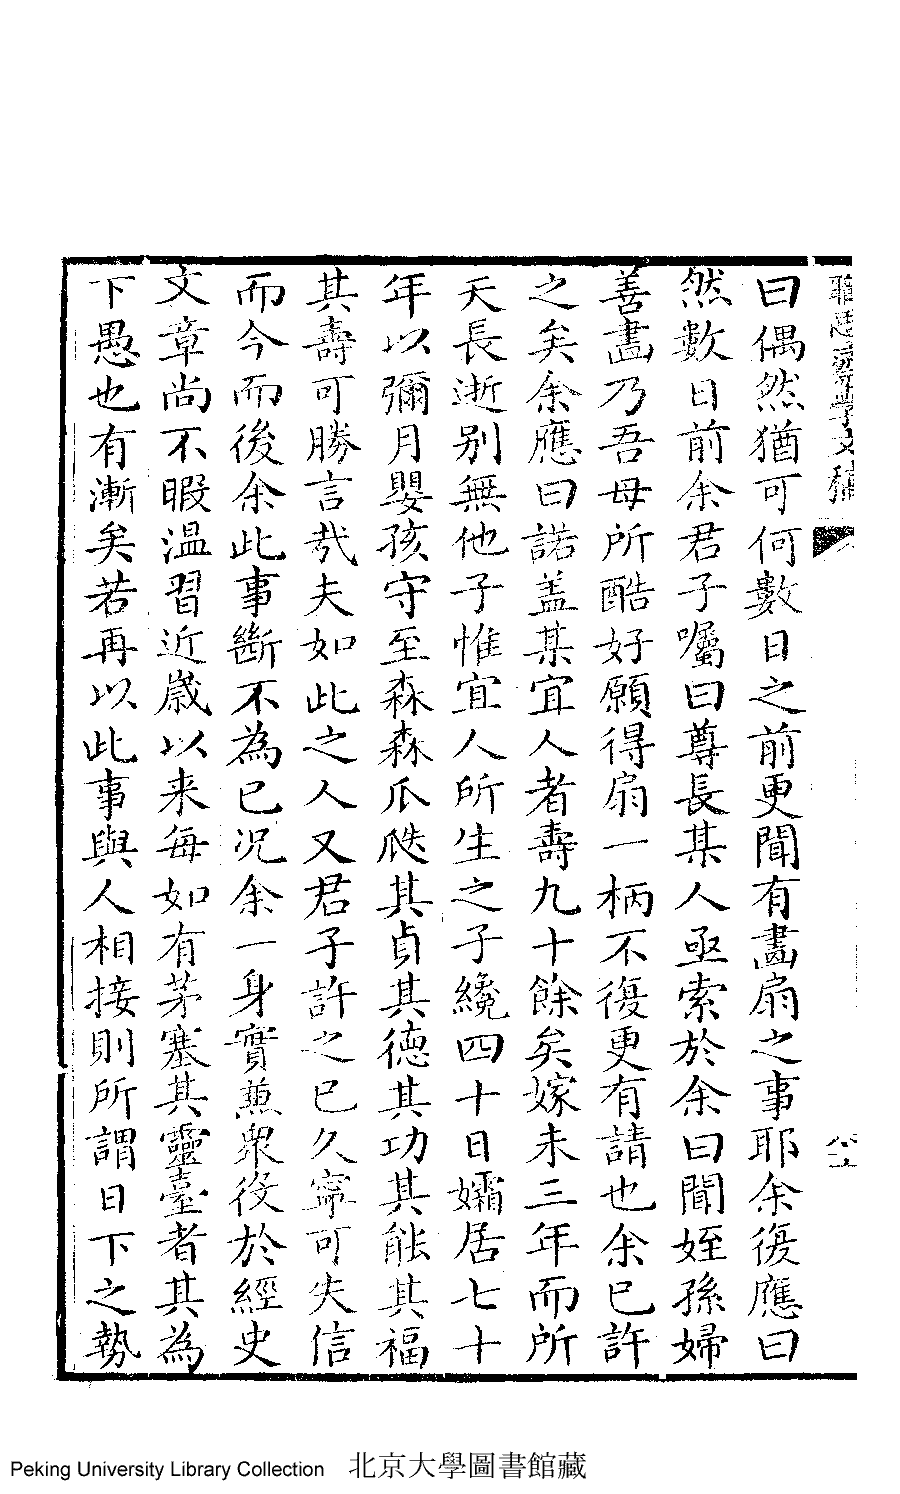 曰偶然猶可何數日之前更聞有畵扇之事耶余復應曰
然數日前余君子囑曰尊長某人亟索於余曰聞姪孫婦
善畵乃吾母所酷好願得扇一柄不復更有請也余已許
之矣余應曰諾盖某宜人者壽九十餘矣嫁未三年而所
天長逝别無他子惟宜人所生之子纔四十日孀居七十
年以彌月嬰孩守至森森瓜瓞其貞其德其功其能其福
其壽可勝言㢤夫如此之人又君子許之已久寧可失信
而今而後余此事斷不為已况余一身實蕉衆役於經史
文章尚不暇温習近歲以来每如有茅塞其靈臺者其為
下愚也有漸矣若再以此事與人相接則所謂日下之勢
Peking University Library Collection 北京大學圖書館藏